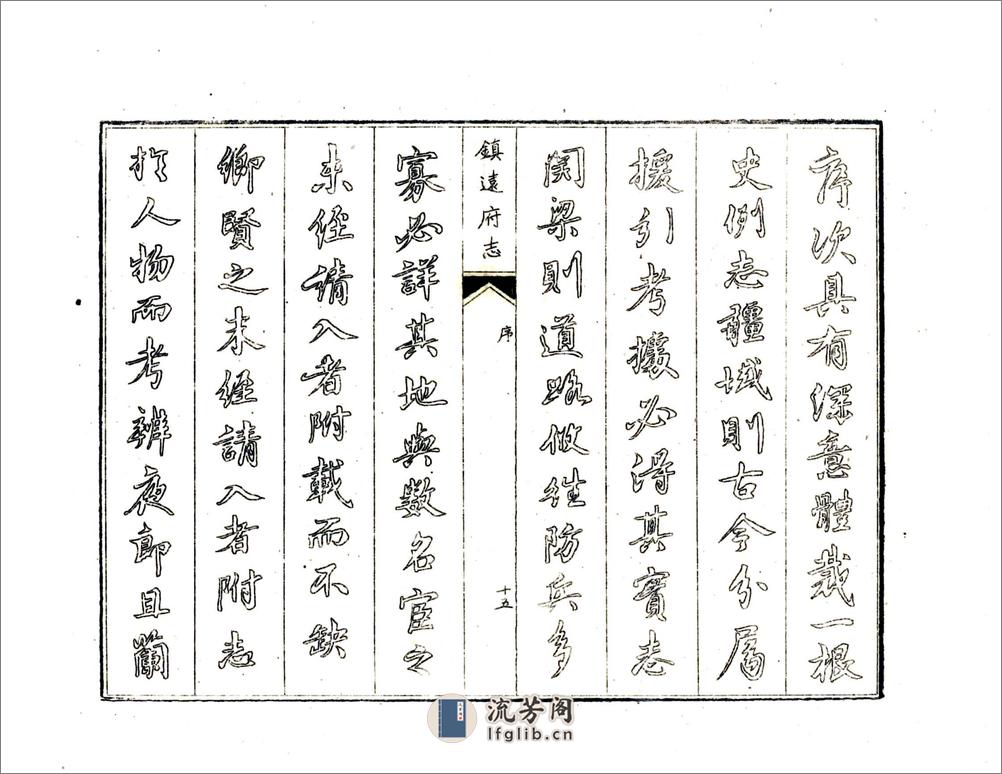 序次具有深意體裁一根
史例志疆域則古今分属
援引考據必得其實志
関梁則道路攸往防兵多
鎮遠府志
序
十五
寡必詳其地與數名宦之
未經請入者附載而不缺
鄉賢之未經請入者附志
於人物而考辨夜郎且蘭
流芳阁
lfglib.cn